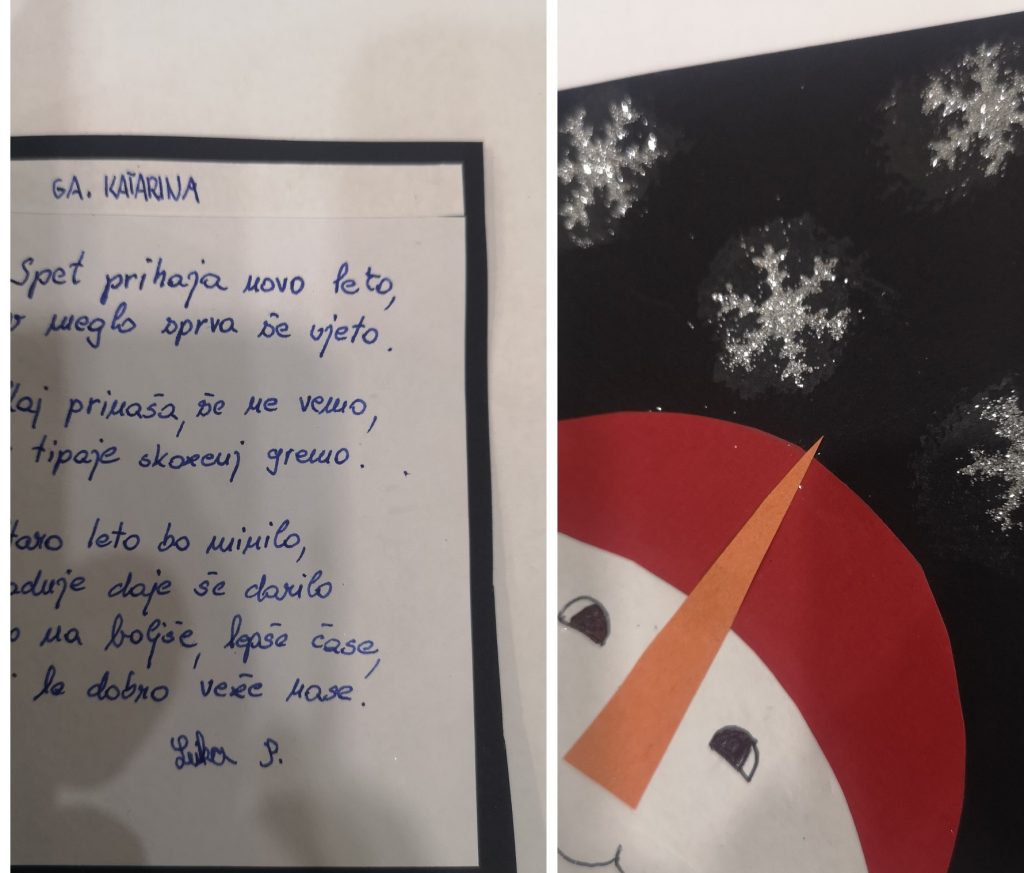 GA. KATARINA
Spet prihaja novo leto,
meglo sprva še ujeto.
prinaša, še ne vemo,
tipaje skozenj gremo.
leto bo minilo,
daje še darilo
na boljše, lepše čase,
le dobro veže nase.
Luka P.